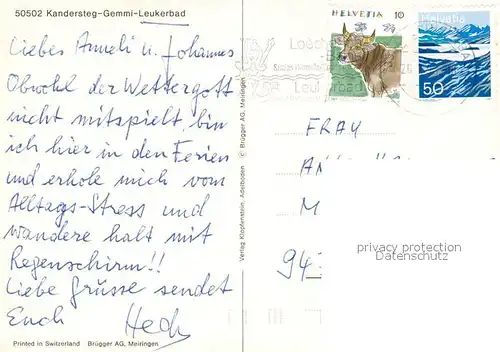 50502 Kandersteg-Gemmi-Leukerbad
Liebes Anneli u. Johannes
Obwohl der Wettergott
nicht mitspielt bin
ich hier in den Ferien
und erhole mich vom
Alltags-Stress und
wandere halt mit
Regenschirm!!
Liebe Grüsse sendet
Euch
Printed in Switzerland Brügger AG, Meiringen
Verlag Klopfenstein, Adelboden © Brügger AG, Meiringen
HELVETIA 10
Helvetia
50
Leukerbad
FRAU
M
943
privacy protection
Datenschutz